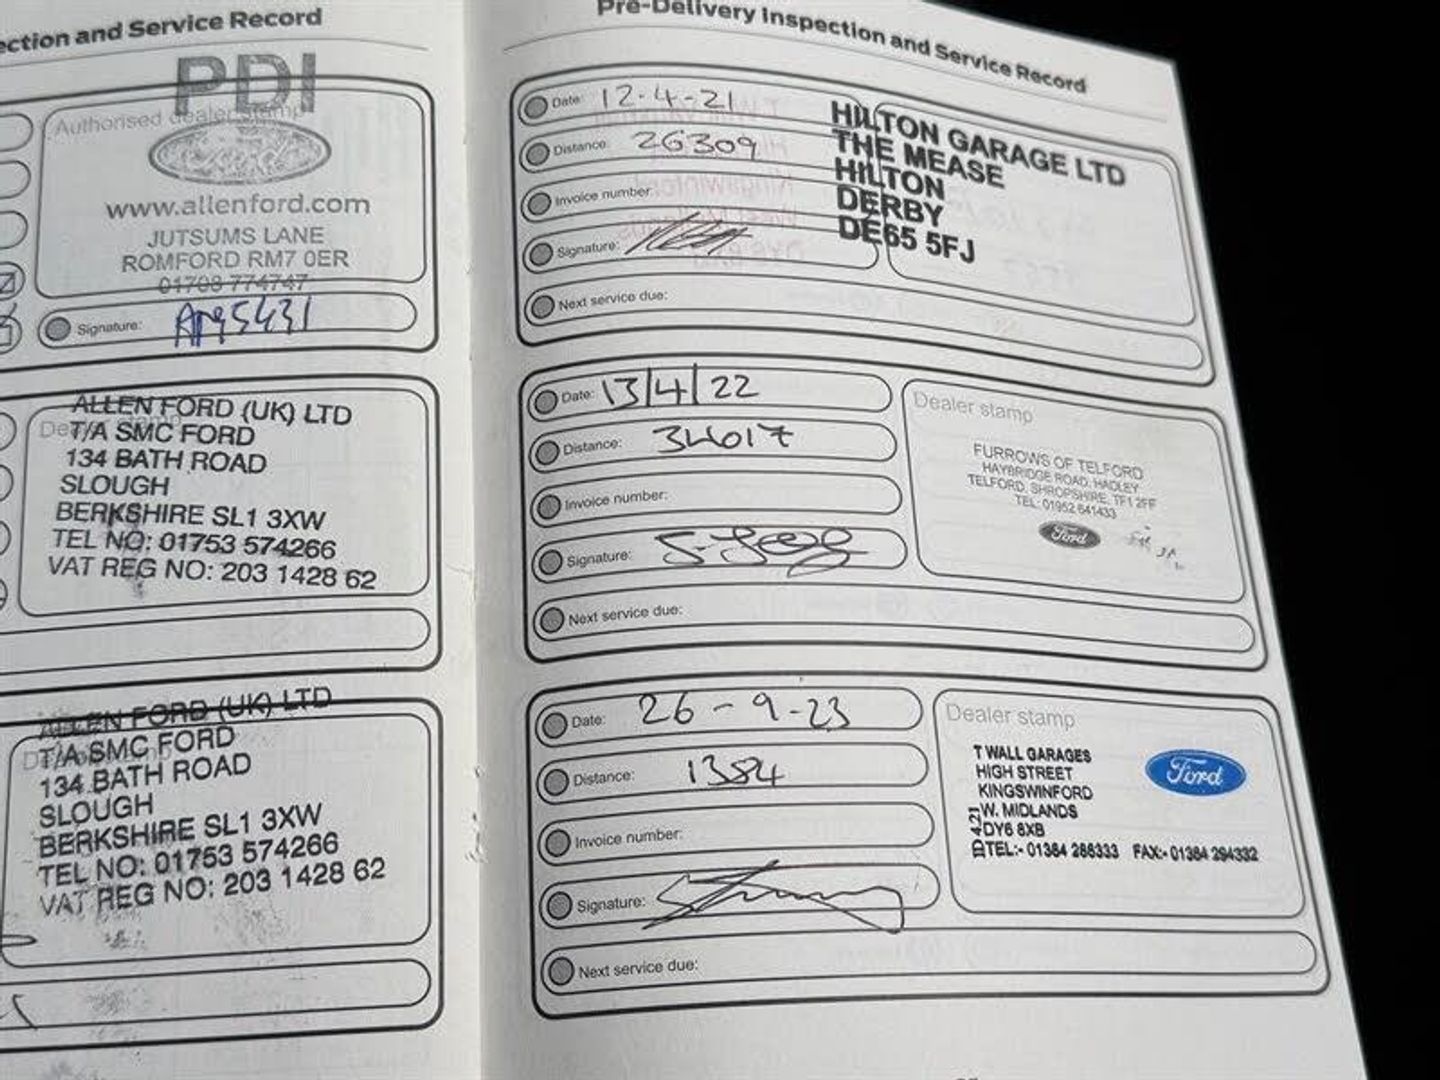 ection and Service Record
PDI
Authorised dealer stamp
Ford
www.allenford.com
JUTSUMS LANE
ROMFORD RM7 0ER
01708 774747
Signature:
ALLEN FORD (UK) LTD
T/A SMC FORD
134 BATH ROAD
SLOUGH
BERKSHIRE SL1 3XW
TEL NO: 01753 574266
VAT REG NO: 203 1428 62
ALLEN FORD (UK) LTD
T/A SMC FORD
134 BATH ROAD
SLOUGH
BERKSHIRE SL1 3XW
TEL NO: 01753 574266
VAT REG NO: 203 1428 62
Pre-Delivery Inspection and Service Record
Date: 12.4-21
Distance: 26309
Invoice number:
Signature:
Next service due:
HILTON GARAGE LTD
THE MEASE
HILTON
DERBY
DE65 5FJ
Date: 13/4/22
Distance: 34017
Invoice number:
Signature:
Next service due:
Dealer stamp
FURROWS OF TELFORD
HAYBRIDGE ROAD, HADLEY
TELFORD, SHROPSHIRE, TF1 2FF
TEL: 01952 641433
Ford
Date: 26-9-23
Distance: 1384
Invoice number:
Signature:
Next service due:
Dealer stamp
T WALL GARAGES
HIGH STREET
KINGSWINFORD
W. MIDLANDS
DY6 8XB
TEL:- 01384 288333 FAX:- 01384 294332
Ford